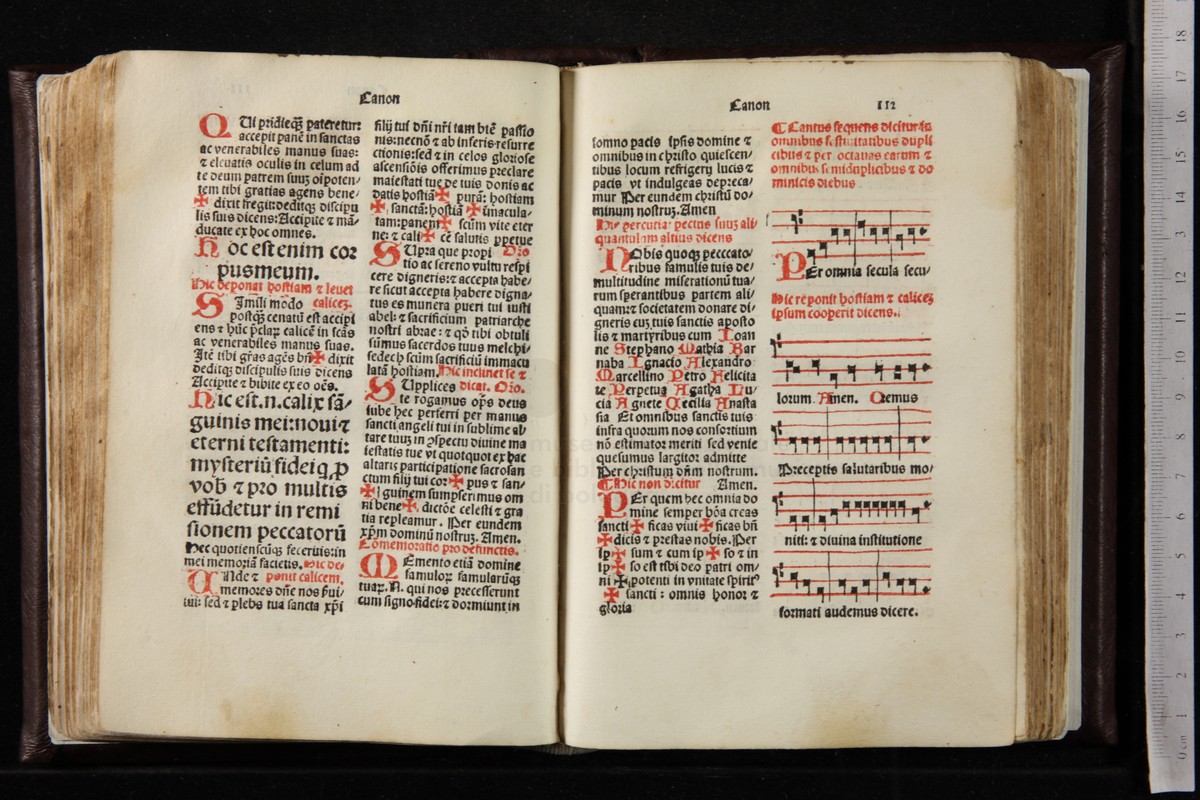 Canon
QUi pridieq̃ pateretur:
accepit panẽ in sanctas
ac venerabiles manus suas:
⁊ eleuatis oculis in celum ad
te deum patrem suuʒ oĩpoten⸗
tem tibi gratias agens bene⸗
✠ dixit fregit:deditqʒ discipu
lis suis dicens:Accipite ⁊ mã⸗
ducate ex hoc omnes.
Hoc est enim cor
pusmeum.
Hic deponat hostiam ⁊ leuet
SImili mõdo calicez.
postqʒ cenatũ est accipi
ens ⁊ hũc p̃clarʒ calicẽ in scãs
ac venerabiles manus suas.
Itẽ tibi grãs agẽs bñ✠ dixit
deditqʒ discipulis suis dicens
Accipite ⁊ bibite ex eo oẽs.
Hic est.n.calix sã⸗
guinis mei:noui ⁊
eterni testamenti:
mysteriũ fidei q̃ ꝓ
vob̃ ⁊ pro multis
effũdetur in remi
ssionem peccatorũ
Hec quotienscũqʒ feceritis:in
mei memoriã facietis. Hic de⸗
UNde ⁊ ponit calicem.
memores dñe nos ẜui⸗
tui: sed ⁊ plebs tua sancta xp̃i
filij tui dñi nr̃i tam btẽ passio
nis:necnõ ⁊ ab inferis resurre
ctionis:sed ⁊ in celos gloriose
ascensiõis offerimus preclare
maiestati tue de tuis donis ac
datis hostiã✠ purã: hostiam
✠ sanctã: hostiã ✠ ĩmacula⸗
tam:panem✠ scũm vite eter
ne: ⁊ cali✠ cẽ salutis ꝑpetue
SUpra que propi Oro
tio ac sereno vultu respi
cere digneris:⁊ accepta habe⸗
re sicut accepta habere digna⸗
tus es munera pueri tui iusti
abel: ⁊ sacrificium patriarche
nostri abrae: ⁊ qõ tibi obtuli
sũmus sacerdos tuus melchi⸗
sedech scũm sacrificiũ immacu
latã hostiam. Hic inclinet se ⁊
SUpplices dicat. Oro.
te rogamus op̃s deus
iube hec perferri per manus
sancti angeli tui in sublime al⸗
tare tuuʒ in ɔspectu diuine ma
iestatis tue vt quotquot ex hac
altaris participatione sacrosan
ctum filij tui cor✠ pus ⁊ san⸗
✠ guinem sumpserimus om
ni bene✠ dictõe celesti ⁊ gra
tia repleamur. Per eundem
xp̃m dominũ nostruʒ. Amen.
Cõmemoratio pro defunctis.
MEmento etiã domine
famuloꝝ famularũqʒ
tuaꝝ.N. qui nos precesserunt
cum signo fidei:⁊ dormiunt in
Canon 112
somno pacis ipsis domine ⁊
omnibus in christo quiescen⸗
tibus locum refrigerij lucis ⁊
pacis vt indulgeas depreca⸗
mur Per eundem christũ do⸗
minum nostruʒ. Amen
Hic percutiat pectus suuʒ ali⸗
quantulum altius dicens
NObis quoqʒ peccato⸗
ribus famulis tuis de⸗
multitudine miserationũ tua⸗
rum sperantibus partem ali⸗
quam:⁊ societatem donare di⸗
gneris cuʒ tuis sanctis aposto
lis ⁊ martyribus cum Ioan
ne Stephano Mathia Bar
naba Ignacio Alexandro
Marcellino Petro Felicita
te Perpetua Agatha Lu⸗
cia Agnete Cecilia Anasta
sia Et omnibus sanctis tuis
infra quorum nos consortium
nõ estimator meriti sed venie
quesumus largitor admitte
Per christum dñm nostrum.
Hic non dicitur Amen.
PEr quem hec omnia do
mine semper bõa creas
sancti✠ ficas viui✠ ficas bñ
✠ dicis ⁊ prestas nobis. Per
ip✠ sum ⁊ cum ip✠ so ⁊ in
ip✠ so est tibi deo patri om⸗
ni✠ potenti in vnitate spirit⁹
✠ sancti : omnis honor ⁊
gloria
¶ Cantus sequens dicitur in
omnibus festiuitatibus dupli
cibus ⁊ per octauas earum ⁊
omnibus semiduplicibus ⁊ do
minicis diebus
PEr omnia secula secu⸗
Hic reponit hostiam ⁊ calicez
ipsum cooperit dicens.
lorum. Amen. Oremus
Preceptis salutaribus mo⸗
niti: ⁊ diuina institutione
formati audemus dicere.